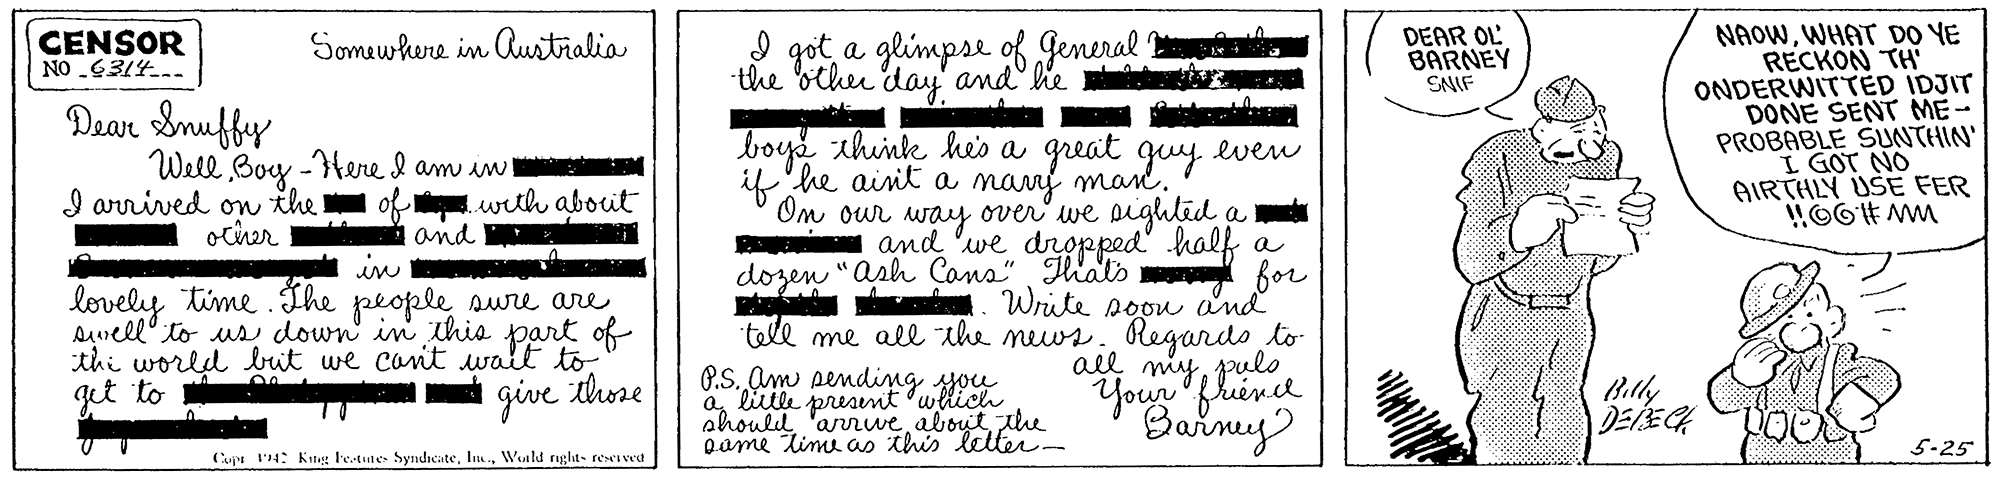 CENSOR
NO 6314
Somewhere in Australia
Dear Snuffy
Well, Boy - Here I am in
I arrived on the of with about
other and
in
lovely time. The people sure are
swell to us down in this part of
the world but we can't wait to
get to give those
Copr. 1942 King Features Syndicate, Inc., World rights reserved
I got a glimpse of General
the other day and he
boys think he's a great guy even
if he ain't a navy man.
On our way over we sighted a
and we dropped half a
dozen "Ash Cans" That's for
. Write soon and
tell me all the news. Regards to
all my pals
Your friend
Barney
P.S. Am sending you
a little present which
should arrive about the
same time as this letter—
DEAR OL'
BARNEY
SNIF
NAOW, WHAT DO YE
RECKON TH'
ONDERWITTED IDJIT
DONE SENT ME—
PROBABLE SUNTHIN'
I GOT NO
AIRTHLY USE FER
!!
Billy
DEBECK
5-25